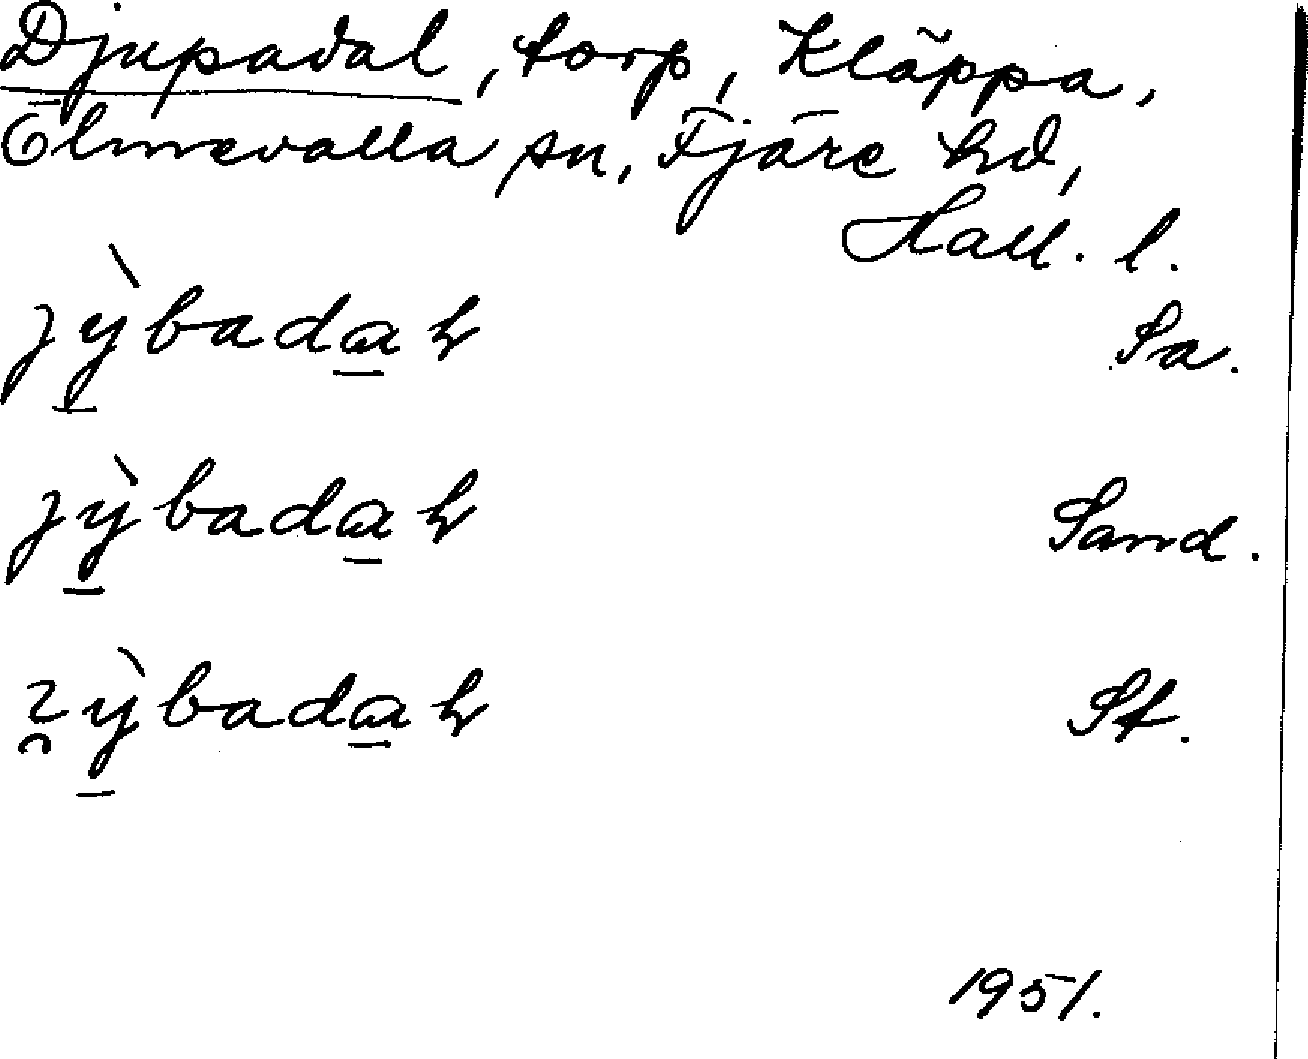 Djupadal, torp, Kläppa,
Ölmevalla sn, Fjäre hd,
Hall. l.
jỳ̠bada̠ɫ Sa.
jỳ̠bada̠ɫ Sand.
ỳ̠bada̠ɫ St.
1951.